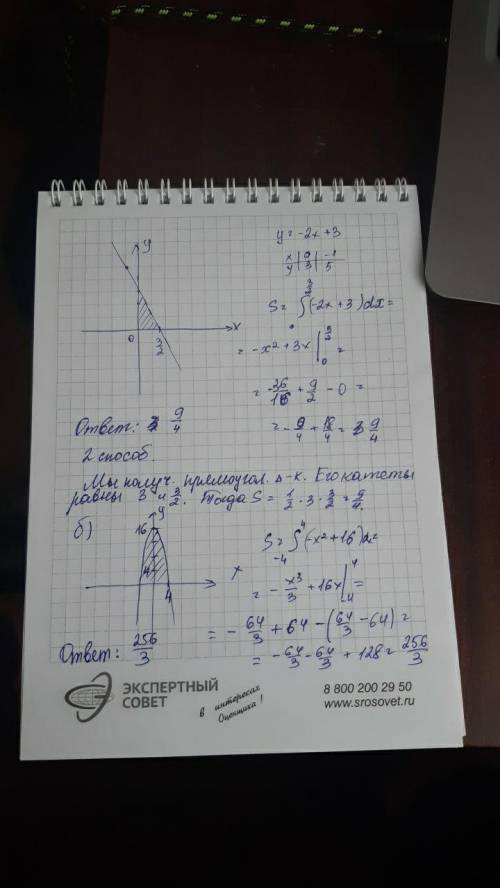 y
x
0
3/2
y = -2x + 3
x | 0 | -1
y | 3 | 5
S = ∫₀^{3/2} (-2x + 3) dx =
= -x² + 3x |₀^{3/2} =
= -36/16 + 9/2 - 0 =
= -9/4 + 18/4 = 9/4
Ответ: 9/4
2 способ.
Мы получ. прямоугол. Δ-к. Его катеты
равны 3 и 3/2. Тогда S = 1/2 · 3 · 3/2 = 9/4.
б)
y
16
-4
4
x
S = ∫₋₄⁴ (-x² + 16) dx
= -x³/3 + 16x |₋₄⁴ =
= -64/3 + 64 - (64/3 - 64) =
= -64/3 - 64/3 + 128 = 256/3
Ответ: 256/3
ЭКСПЕРТНЫЙ
СОВЕТ
в интересах
Оценщика!
8 800 200 29 50
www.srosovet.ru